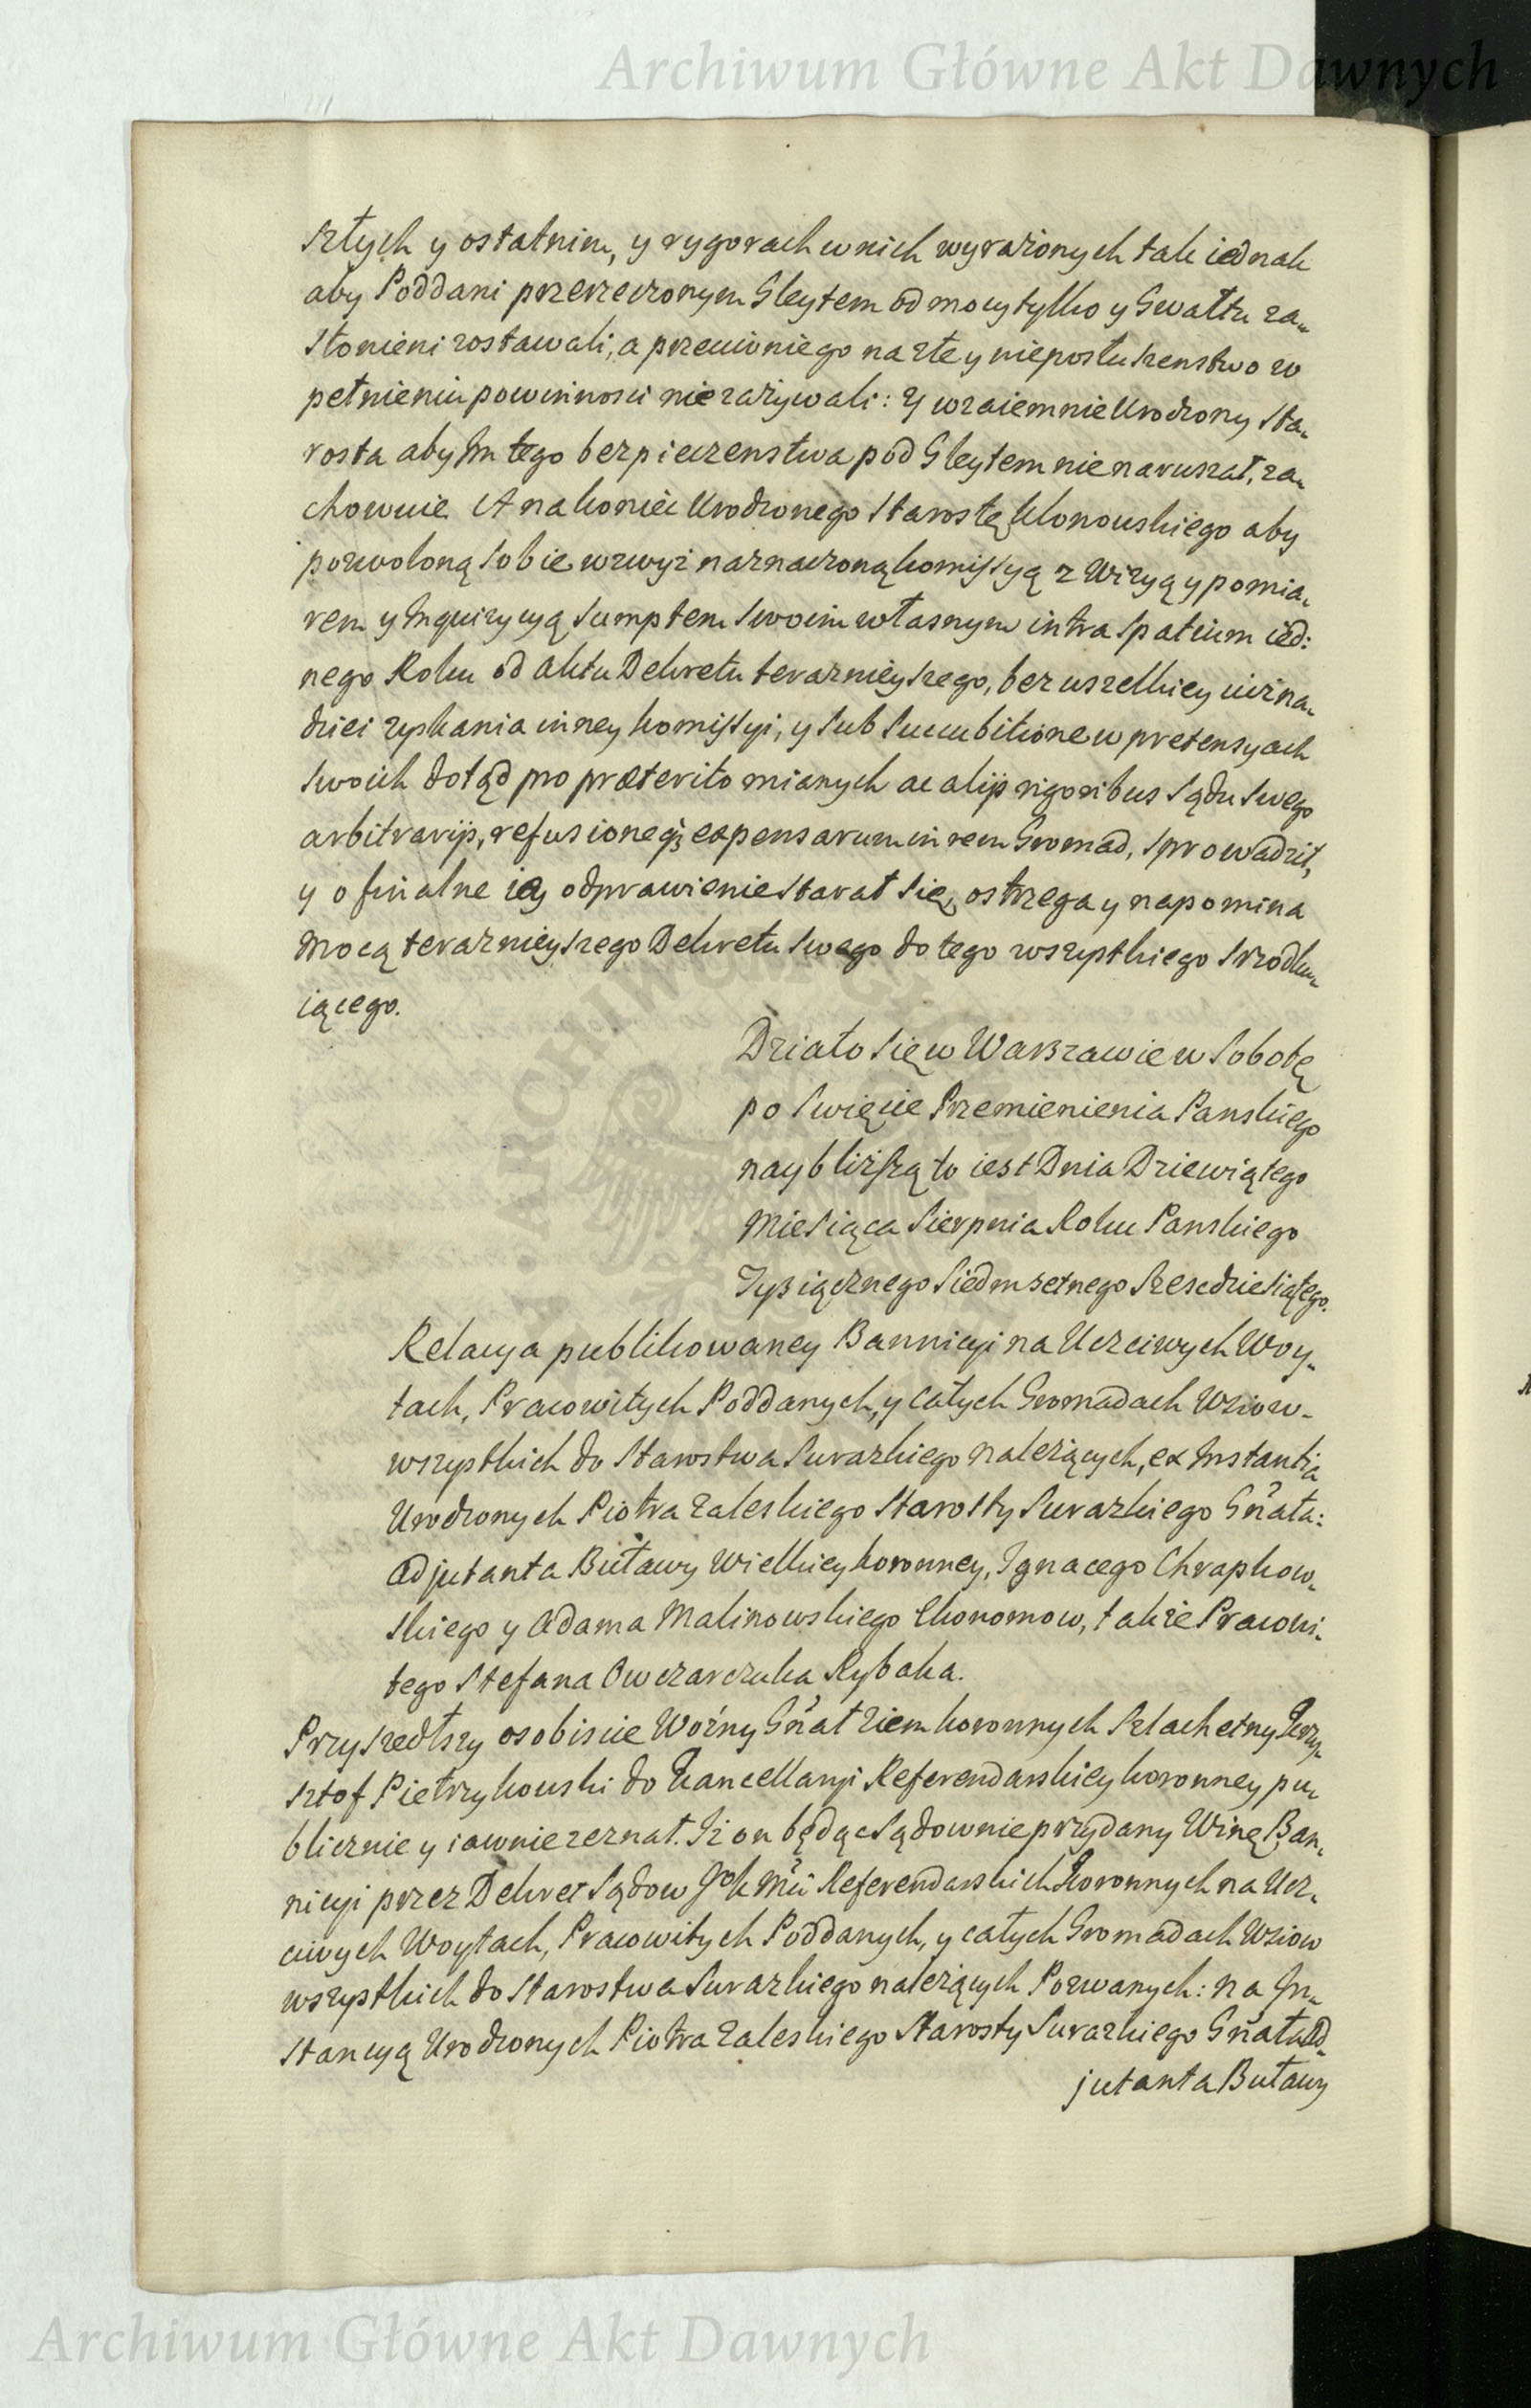 Archiwum Główne Akt Dawnych
szłych y ostatnim, y rygorach w nich wyrażonych tak iednak
aby Poddani przerzeczonym Gleytem od mocy tylko y Gwałtu za„
słonieni zostawali, a przeciw niego na złe y nieposłuszenstwo w
pełnieniu powinnosci nie zażywali: Y wzaiemnie Urodzony Sta„
rosta aby Im tego bezpieczenstwa pod Gleytem nie naruszał, za„
chowuie. A na koniec Urodzonego Starostę Klonowskiego aby
pozwoloną sobie wzwyż naznaczoną kommissyą z Wizyą y pomia„
rem y Inquizycyą sumptem swoim własnym intra spatium ied:
nego Roku od aktu Dekretu teraznieyszego, bez wszelkiey iuż na„
dziei zyskania inney kommissyi, y sub succubitione w pretensyach
swoich dotąd pro præterito mianych ac alijs rigoribus Sądu Swego
arbitrarijs, refusioneq3 expensarum in rem Gromad, sprowadził,
y o finalne iey odprawienie starał się, ostrzega y napomina
mocą teraznieyszego Dekretu swego do tego wszystkiego srzodku„
iącego.
Działo się w Warszawie w Sobotę
po Swięcie Przemienienia Panskiego
naybliższą to iest Dnia Dziewiątego
Miesiąca Sierpnia Roku Panskiego
Tysiącznego Siedmsetnego Szescdziesiątego.
Relacya publikowaney Bannicyi na Uczciwych Woy„
tach, Pracowitych Poddanych, y całych Gromadach Wsiow
wszystkich do Starostwa Surazkiego należących, ex Instantia
Urodzonych Piotra Zaleskiego Starosty Surazkiego Gnała:
Adjutanta Buławy Wielkiey koronney, Ignacego Chrapkow„
skiego y Adama Malinowskiego Ekonomow, także Pracowi„
tego Stefana Owczarczuka Rybaka.
Przyszedłszy osobiscie Woźny Gnał Ziem koronnych Szlachetny Krzy„
sztof Pietrzykowski do Kancellaryi Referendarskiey koronney pu„
blicznie y iawnie zeznał. Iż on będąc Sądownie przydany Winę Ban„
nicyi przez Dekret Sądow Jok Mci Referendarskich Koronnych na Ucz„
ciwych Woytach, Pracowitych Poddanych, y całych Gromadach Wsiow
wszystkich do Starostwa Surazkiego należących Pozwanych: na In„
stancyą Urodzonych Piotra Zaleskiego Starosty Surazkiego Gnała Ad„
jutanta Buławy
Archiwum Główne Akt Dawnych